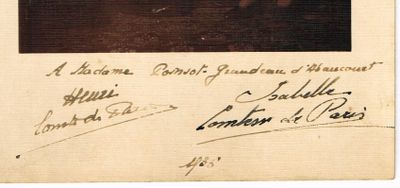 A Madame Poinsot-Grandeau d'Haucourt
Henri
Comte de Paris
Isabelle
Comtesse de Paris